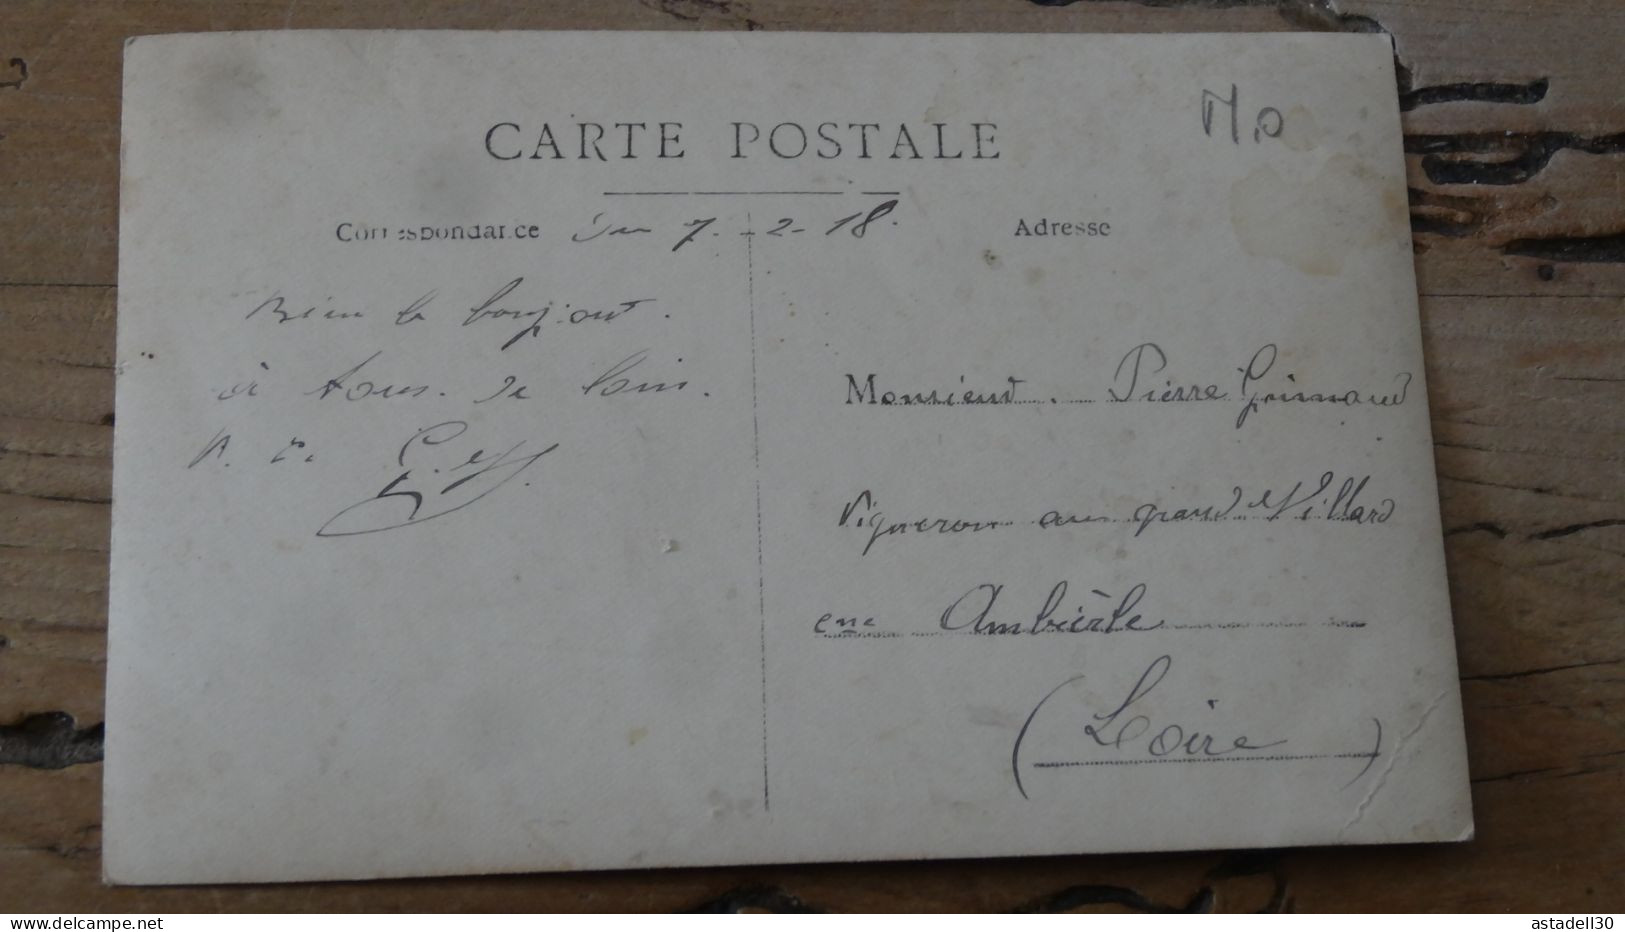 CARTE POSTALE
Correspondance
7-2-18.
Adresse
Bien le bonjour.
à tous. de loin.
Monsieur. Pierre Grimaud
Vigneron au grand Villard
en Ambièrle
(Loire)
delcampe.net
astadell30